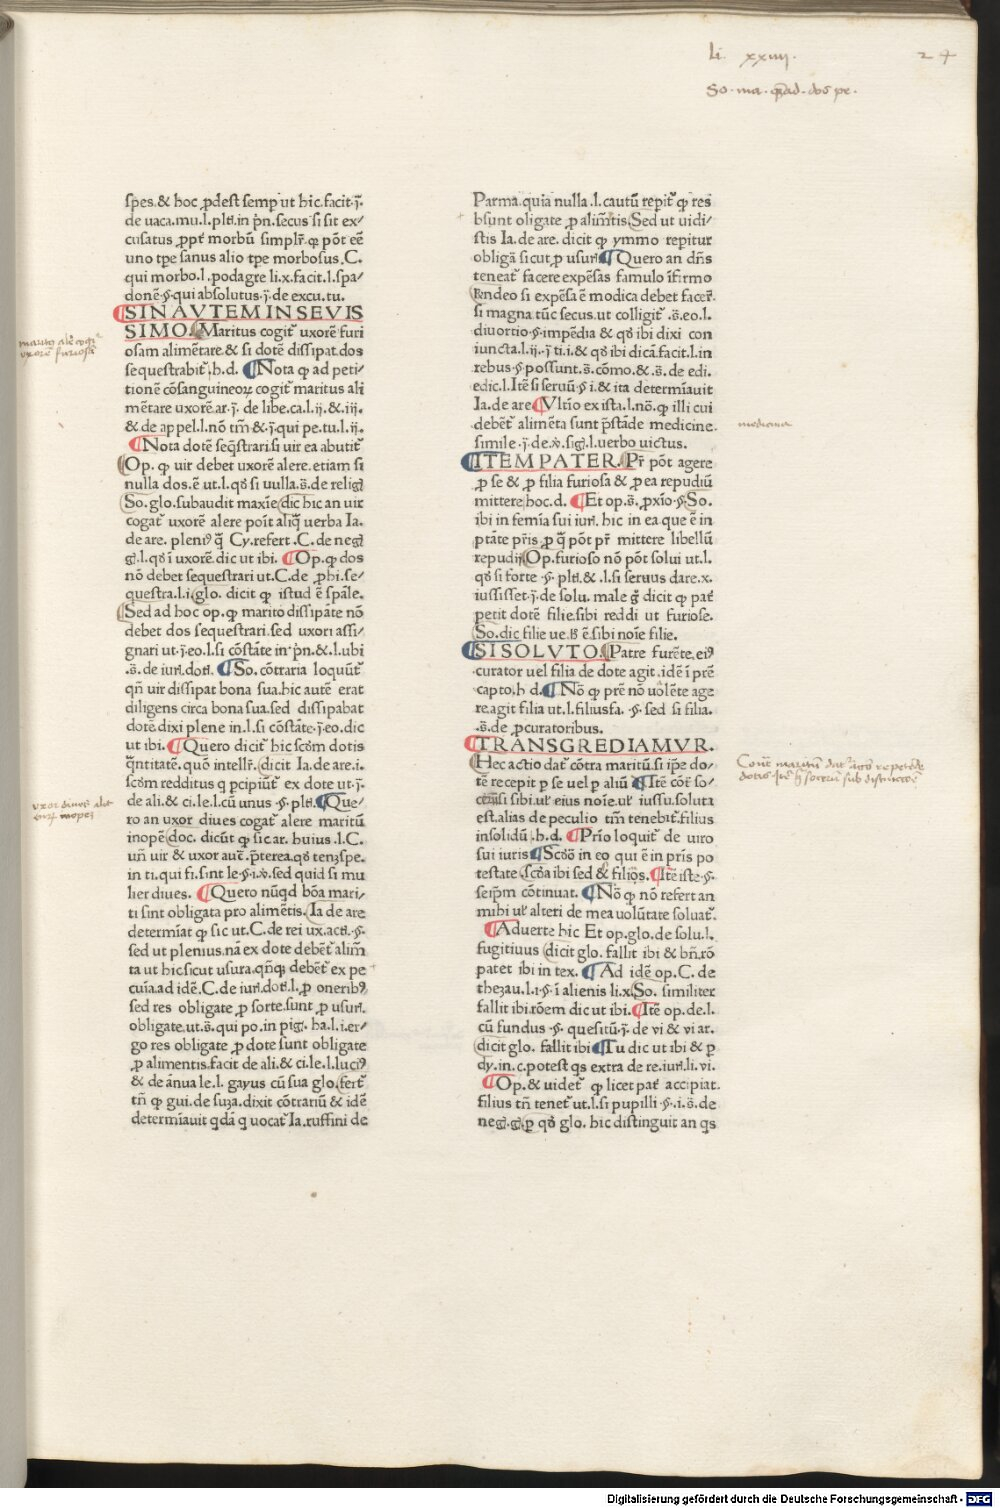 li. xxiiii. 24
So. ma. quead. dos pe.
spes.& hoc ꝓdest semꝑ ut hic.facit.j̄.
de uaca.mu.l.pltī.in p̄n.secus si sit ex/
cusatus ꝓpt̄ morbū simplr̄.ꝙ pōt eē
uno tꝑe sanus alio tꝑe morbosus.C.
qui morbo.l.podagre li.x.facit.l.spa/
donē.§.qui absolutus.j̄.de excu.tu.
SIN AVTEM IN SEVIS
SIMO. Maritus cogit̄ uxorē furi
osam alimētare.& si dotē dissipat.dos
sequestrabit̄.h.d. Nota ꝙ ad peti/
tionē cōsanguineoꝝ cogit̄ maritus ali
mētare uxorē.ar.j̄. de libe.ca.l.ij.& iij.
& de appel.l.nō tm̄ & j̄.qui pe.tu.l.ij.
Nota dotē seq̄strari.si uir ea abutit̄
Op. ꝙ uir debet uxorē alere.etiam si
nulla dos.ē ut.l.qd̄ si uulla.s̄.de reliḡ
So.glo.subaudit maxīe dic hic an uir
cogat̄ uxorē alere poīt aliq̄ uerba Ia.
de are. pleniꝰ q̄ Cy.refert .C. de neḡ
ḡ.l.qd̄ ī uxorē.dic ut ibi. Op.ꝙ dos
nō debet sequestrari ut.C.de ꝓhi.se/
questra.l.i glo. dicit ꝙ istud ē spāle.
Sed ad hoc op.ꝙ marito dissipāte nō
debet dos sequestrari.sed uxori assi/
gnari ut.j̄.eo.l.si cōstāte in p̄n.& .l.ubi
.s̄.de iurī.dotī. So. cōtraria loquūt̄
qn̄ uir dissipat bona sua.hic autē erat
diligens circa bona sua.sed dissipabat
dotē.dixi plene in.l.si cōstāte.j̄.eo.dic
ut ibi. Quero dicit̄ hic scōm dotis
q̄ntitatē.quō intellr̄.dicit Ia.de are.i.
scōm redditus q ꝑcipiūt̄ ex dote ut.j̄.
de ali.& ci.le.l.cū unus .§.pltī. Que/
ro an uxor diues cogat̄ alere maritū
inopē doc. dicūt ꝙ sic ar. huius .l.C.
un̄ uir & uxor aut̄. p̄terea.qd̄ tenꝫ spe.
in ti.qui fi.sint le.§.i.ꝟ.sed quid si mu
lier diues. Quero nūqd bōa mari/
ti sint obligata pro alimētis. Ia de are
determīat ꝙ sic ut.C.de rei ux.actī.§.
sed ut plenius.nā ex dote debēt̄ alim̄
ta ut hic sicut usura.qn̄qꝫ debēt̄ ex pe
cuīa.ad idē.C.de iurī.dotī.l.ꝓ oneribꝰ
sed res obligate ꝓ sorte.sunt ꝓ usurī.
obligate.ut.s̄.qui po.in piḡ. ha.l.i.er/
go res obligate ꝓ dote sunt obligate
ꝓ alimentis.facit de ali.& ci.le.l.luciꝰ
& de ānua le.l. gayus cū sua glo.fert̄
tn̄ ꝙ gui.de suza.dixit cōtrariū & idē
determīauit qdā q uocat̄ Ia.ruffini de
Parma.quia nulla .l.cautū repit̄ ꝙ res
bsunt oligate ꝓ alim̄tis. Sed ut uidi/
stis Ia.de are. dicit ꝙ ymmo repitur
obligā sicut ꝓ usurī Quero an dn̄s
teneat̄ facere expēsas famulo īfirmo
Rn̄deo si expēsa ē modica debet facer̄.
si magna tūc secus.ut colligit̄ .s̄.eo.l.
diuortio.§.impēdia & qd̄ ibi dixi con
iuncta.l.ij.j̄ ti.i.& qd̄ ibi dicā.facit.l.in
rebus.§.possunt.s̄.cōmo.& .s̄.de edi.
edic.l.Itē si seruū.§ i.& ita determīauit
Ia.de are Vltīo ex ista.l.nō.ꝙ illi cui
debēt̄ alimēta sunt p̄stāde medicine.
simile .j̄.de.ꝟ.siḡ.l.uerbo uictus.
ITEM PATER. Pr̄ pōt agere
ꝓ se & ꝓ filia furiosa & ꝓ ea repudiū
mittere hoc.d. Et op.s̄.ꝓxīo.§. So.
ibi in femīa sui iurī. hic in ea que ē in
ptāte pr̄is ꝓ q̄ pōt pr̄ mittere libellū
repudij Op.furioso nō pōt solui ut.l.
qd̄ si forte .§. pltī.& .l.si seruus dare.x.
iussisset.j̄.de solu. male ḡ dicit ꝙ pat̄
petit dotē filie.sibi reddi ut furiose.
So.dic filie ue.id̄ ē.sibi noīe filie.
SI SOLVTO. Patre furēte.eiꝰ
curator uel filia de dote agit.idē ī prē
capto.h d. Nō ꝙ prē nō uolēte age
re.agit filia ut.l.filiusfa. §. sed si filia.
.s̄.de ꝓcuratoribus.
TRANSGREDIAMVR.
Hec actio dat̄ cōtra maritū.si ip̄e do/
tē recepit ꝑ se uel ꝑ aliū Itē cōt̄ so/
cerū si sibi.ul̄ eius noīe.ul̄ iussu.soluta
est.alias de peculio tm̄ tenebit̄.filius
insolidū.h.d. Prīo loquit̄ de uiro
sui iuris Scd̄o in eo qui ē in pr̄is po
testate scd̄a ibi sed & filiofs. Itē iste.§.
seip̄m cōtinuat. Nō ꝙ nō refert an
mihi ul̄ alteri de mea uolūtate soluat̄.
Aduerte hic Et op.glo.de solu.l.
fugitiuus dicit glo. fallit ibi & bn̄.rō
patet ibi in tex. Ad idē op.C. de
thezau.l.i.§ ī alienis li.x. So. similiter
fallit ibi.rōem dic ut ibi. Itē op.de.l.
cū fundus .§. quesitū.j̄.de vi & vi ar.
dicit glo. fallit ibi Tu dic ut ibi & ꝑ
dy.in.c.potest qs extra de re.iurī.li.vi.
Op.& uidet̄ ꝙ licet pat̄ accipiat.
filius tn̄ tenet̄ ut.l.si pupilli.§.i.s̄.de
neḡ.ḡ.ꝑ qd̄ glo. hic distinguit an qs
uxorē furiosā
uxor diues alit
inopē
medicine
Digitalisierung gefördert durch die Deutsche Forschungsgemeinschaft - DFG